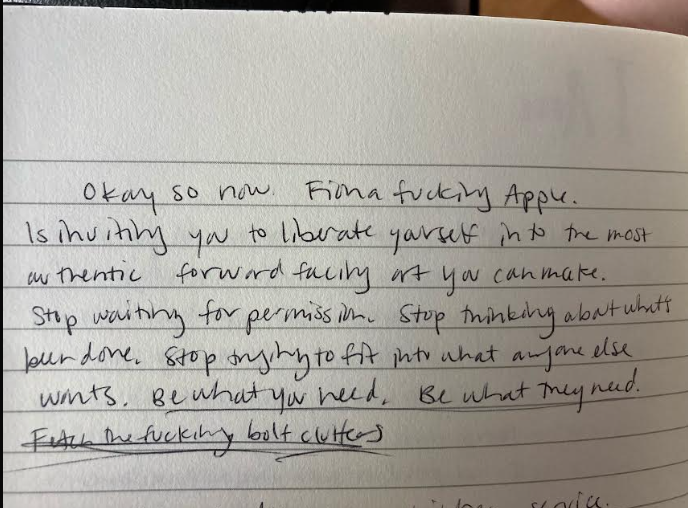 Okay so now. Fiona fucking Apple.
Is inviting you to liberate yourself into the most
authentic forward facing art you can make.
Stop waiting for permission. Stop thinking about what's
been done. Stop trying to fit into what anyone else
wants. Be what you need. Be what they need.
Fetch the fucking bolt cutters
service.